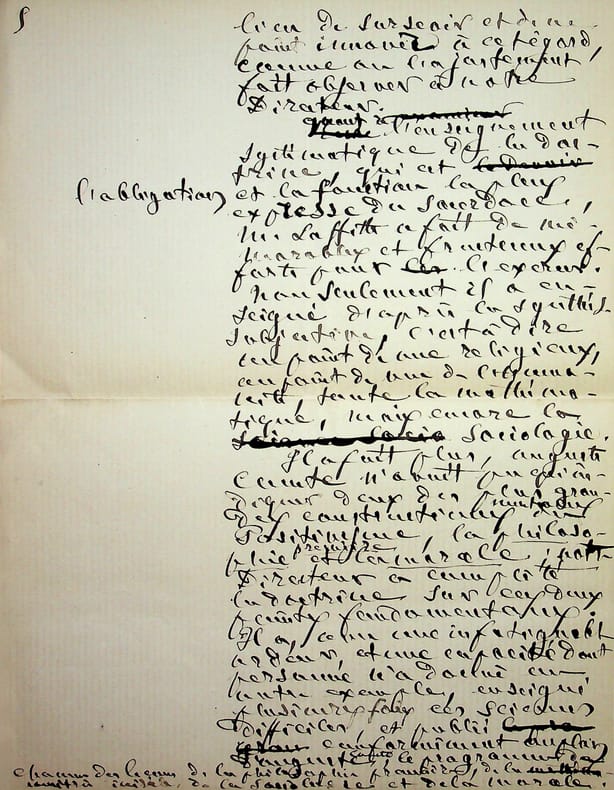 5
lieu de surseoir et de ne
point innover à cet égard,
comme on l'a justement
fait observer à notre
Directeur.
quant à examiner
l'enseignement
systématique de la doc-
trine, qui est le devoir
l'obligation
et la fonction la plus
expresse du Sacerdoce,
M. Laffitte a fait de mé-
morables et fructueux ef-
forts pour l'exercer.
Non seulement il a en-
seigné d'après la synthèse
subjective, c'est à dire
au point de vue religieux,
au point de vue de l'huma-
nité, toute la mathéma-
tique, mais encore la
Science socia Sociologie.
Il a fait plus, auguste
Comte n'avait pu qu'in-
diquer deux des plus gran-
des constructions du
Positivisme, la philoso-
première
phie et la morale; notre
Directeur a complété
la doctrine sur ces deux
points fondamentaux.
Il a, avec une infatigable
ardeur, et une capacité dont
personne n'a donné un
autre exemple, enseigné
plusieurs fois ces sciences
difficiles et publié
conformément au plan
et le programme
chacune des leçons de la philosophie première, de la
de la Sociologie et de la morale